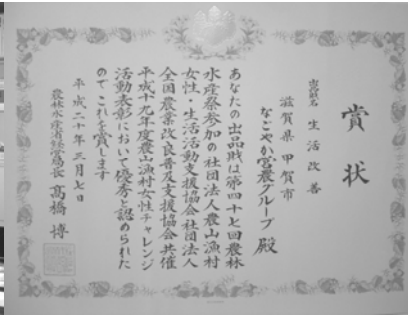 賞状
出品財名 生活改善
滋賀県 甲賀市
なごやか営農グループ 殿
あなたの出品財は第四十七回農林
水産祭参加の社団法人農山漁村
女性・生活活動支援協会社団法人
全国農業改良普及支援協会共催
平成十九年度農山漁村女性チャレンジ
活動表彰において優秀と認められた
のでこれを賞します
平成二十年三月七日
農林水産省経営局長 高橋 博